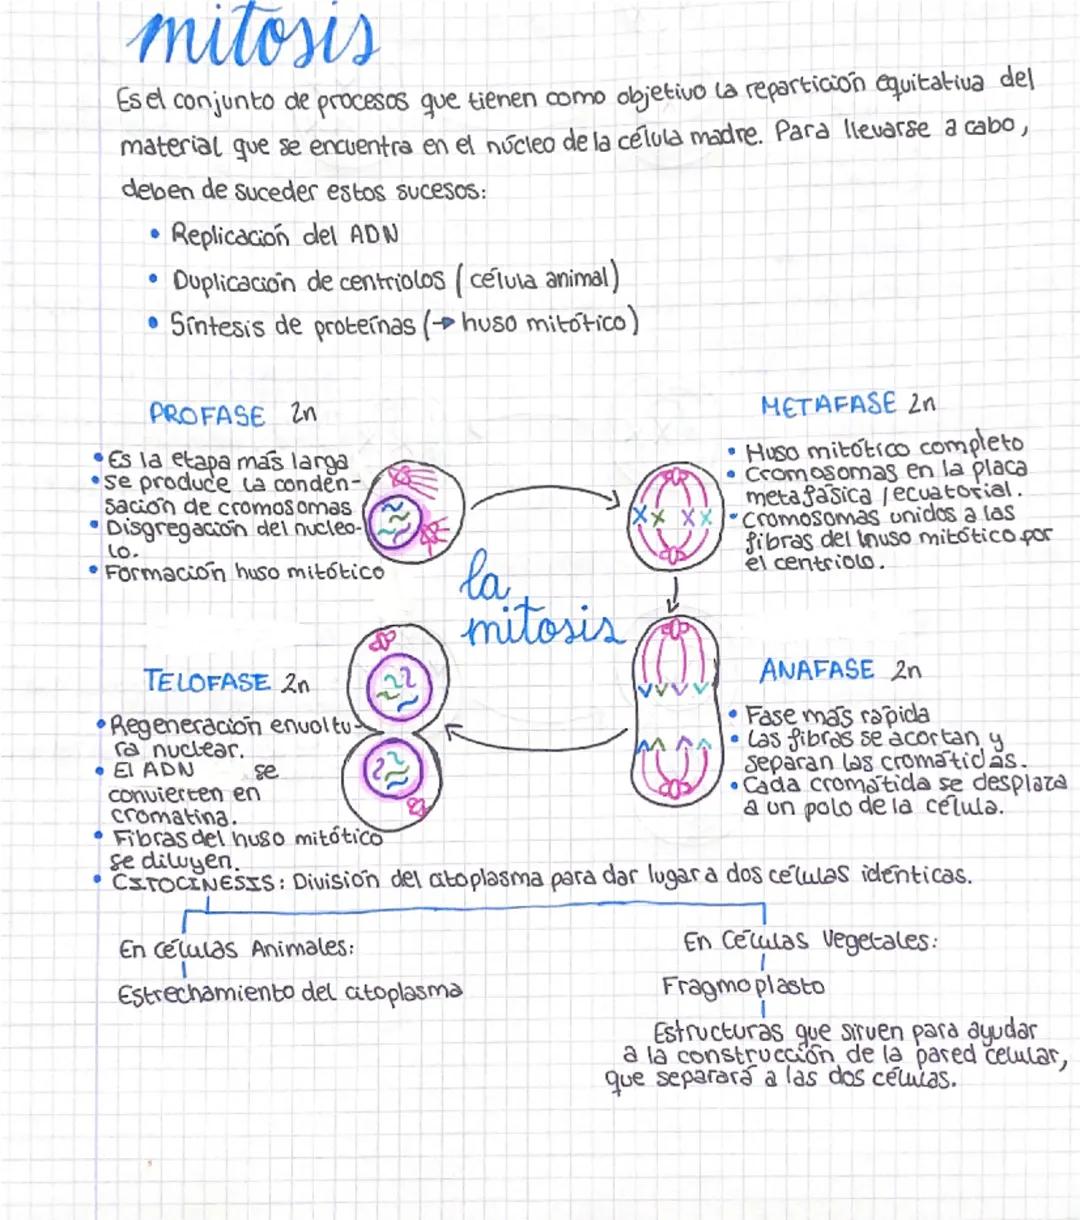 mitosis
Es el conjunto de procesos que tienen como objetivo la repartición equitativa del
material que se encuentra en el núcleo de la célula madre. Para llevarse a cabo,
deben de suceder estos sucesos:
• Replicación del ADN
• Duplicación de centriolos (célula animal)
• Síntesis de proteínas (→ huso mitótico)
PROFASE 2n
• Es la etapa más larga
• Se produce la conden-
sación de cromosomas
• Disgregación del nucleo-
lo.
• Formación huso mitótico
METAFASE 2n
• Huso mitótico completo
• Cromosomas en la placa
metafásica / ecuatorial.
• Cromosomas unidos a las
fibras del huso mitótico por
el centriolo.
la
mitosis
TELOFASE 2n
• Regeneración envoltu-
ra nuclear.
• El ADN se
convierten en
cromatina.
• Fibras del huso mitótico
se diluyen.
ANAFASE 2n
• Fase más rápida
• Las fibras se acortan y
separan las cromátidas.
• Cada cromátida se desplaza
a un polo de la célula.
• CITOCINESIS: División del citoplasma para dar lugar a dos células idénticas.
En células Animales:
Estrechamiento del citoplasma
En Células Vegetales:
Fragmoplasto
Estructuras que sirven para ayudar
a la construcción de la pared celular,
que separará a las dos células.